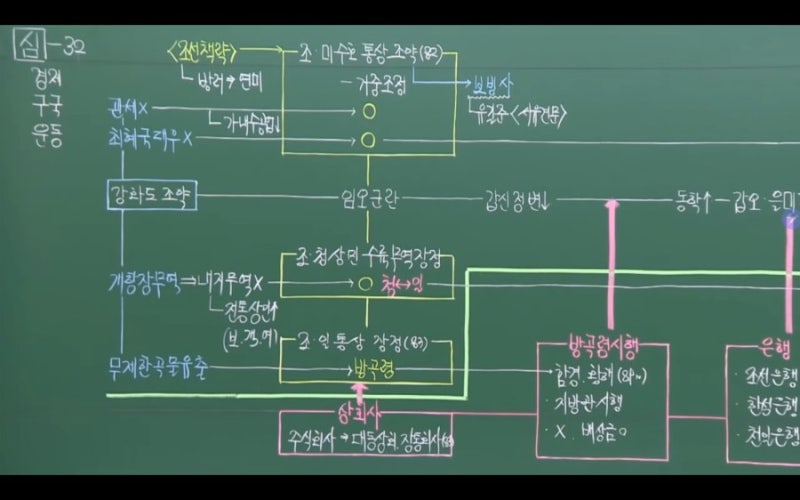 심-32
경제
구국
운동
<조선책략>
방러→연미
조·미수호통상조약(82)
-거중조정
보빙사
유길준<서유견문>
관세X
가내수공업↓
최혜국대우X
강화도조약
임오군란
갑신정변↓
동학↑-갑오·을미
조·청상민수륙무역장정
개항장무역⇒내지무역X
청↔일
전통상인↑
(보.객.여)
조·일통상장정(83)
무제한곡물유출
방곡령
상회사
주식회사→대동상회.장통회사(83)
방곡령시행
함경.황해(89~)
·지방관시행
·X.배상금○
은행
·조선은행
·한성은행
·천일은행